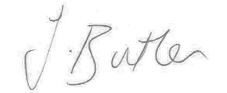 J. Butler